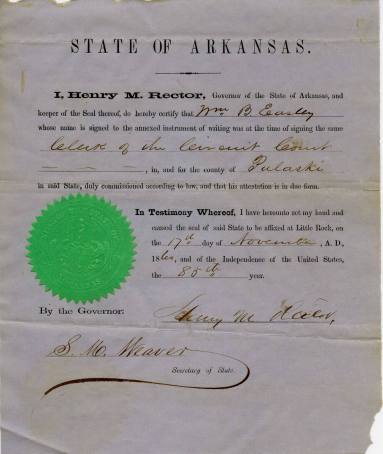 STATE OF ARKANSAS.
I, Henry M. Rector, Governor of the State of Arkansas, and
keeper of the Seal thereof, do hereby certify that Wm B. Easley
whose name is signed to the annexed instrument of writing was at the time of signing the same
Clerk of the Circuit Court
, in, and for the county of Pulaski
in said State, duly commissioned according to law, and that his attestation is in due form.
In Testimony Whereof, I have hereunto set my hand and
caused the seal of said State to be affixed at Little Rock, on
the 17th day of November, A. D.,
1860, and of the Independence of the United States,
the 85th year.
By the Governor:
Henry M Rector,
S. M. Weaver
Secretary of State.